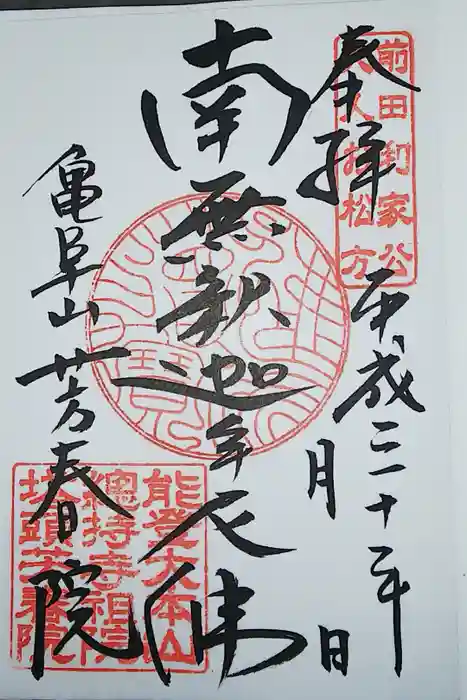 奉拝
前田利家公
夫人於松方
平成三十年
月
日
南無釈迦牟尼佛
亀阜山
芳春院
能登大本山
總持寺祖院
塔頭芳春院